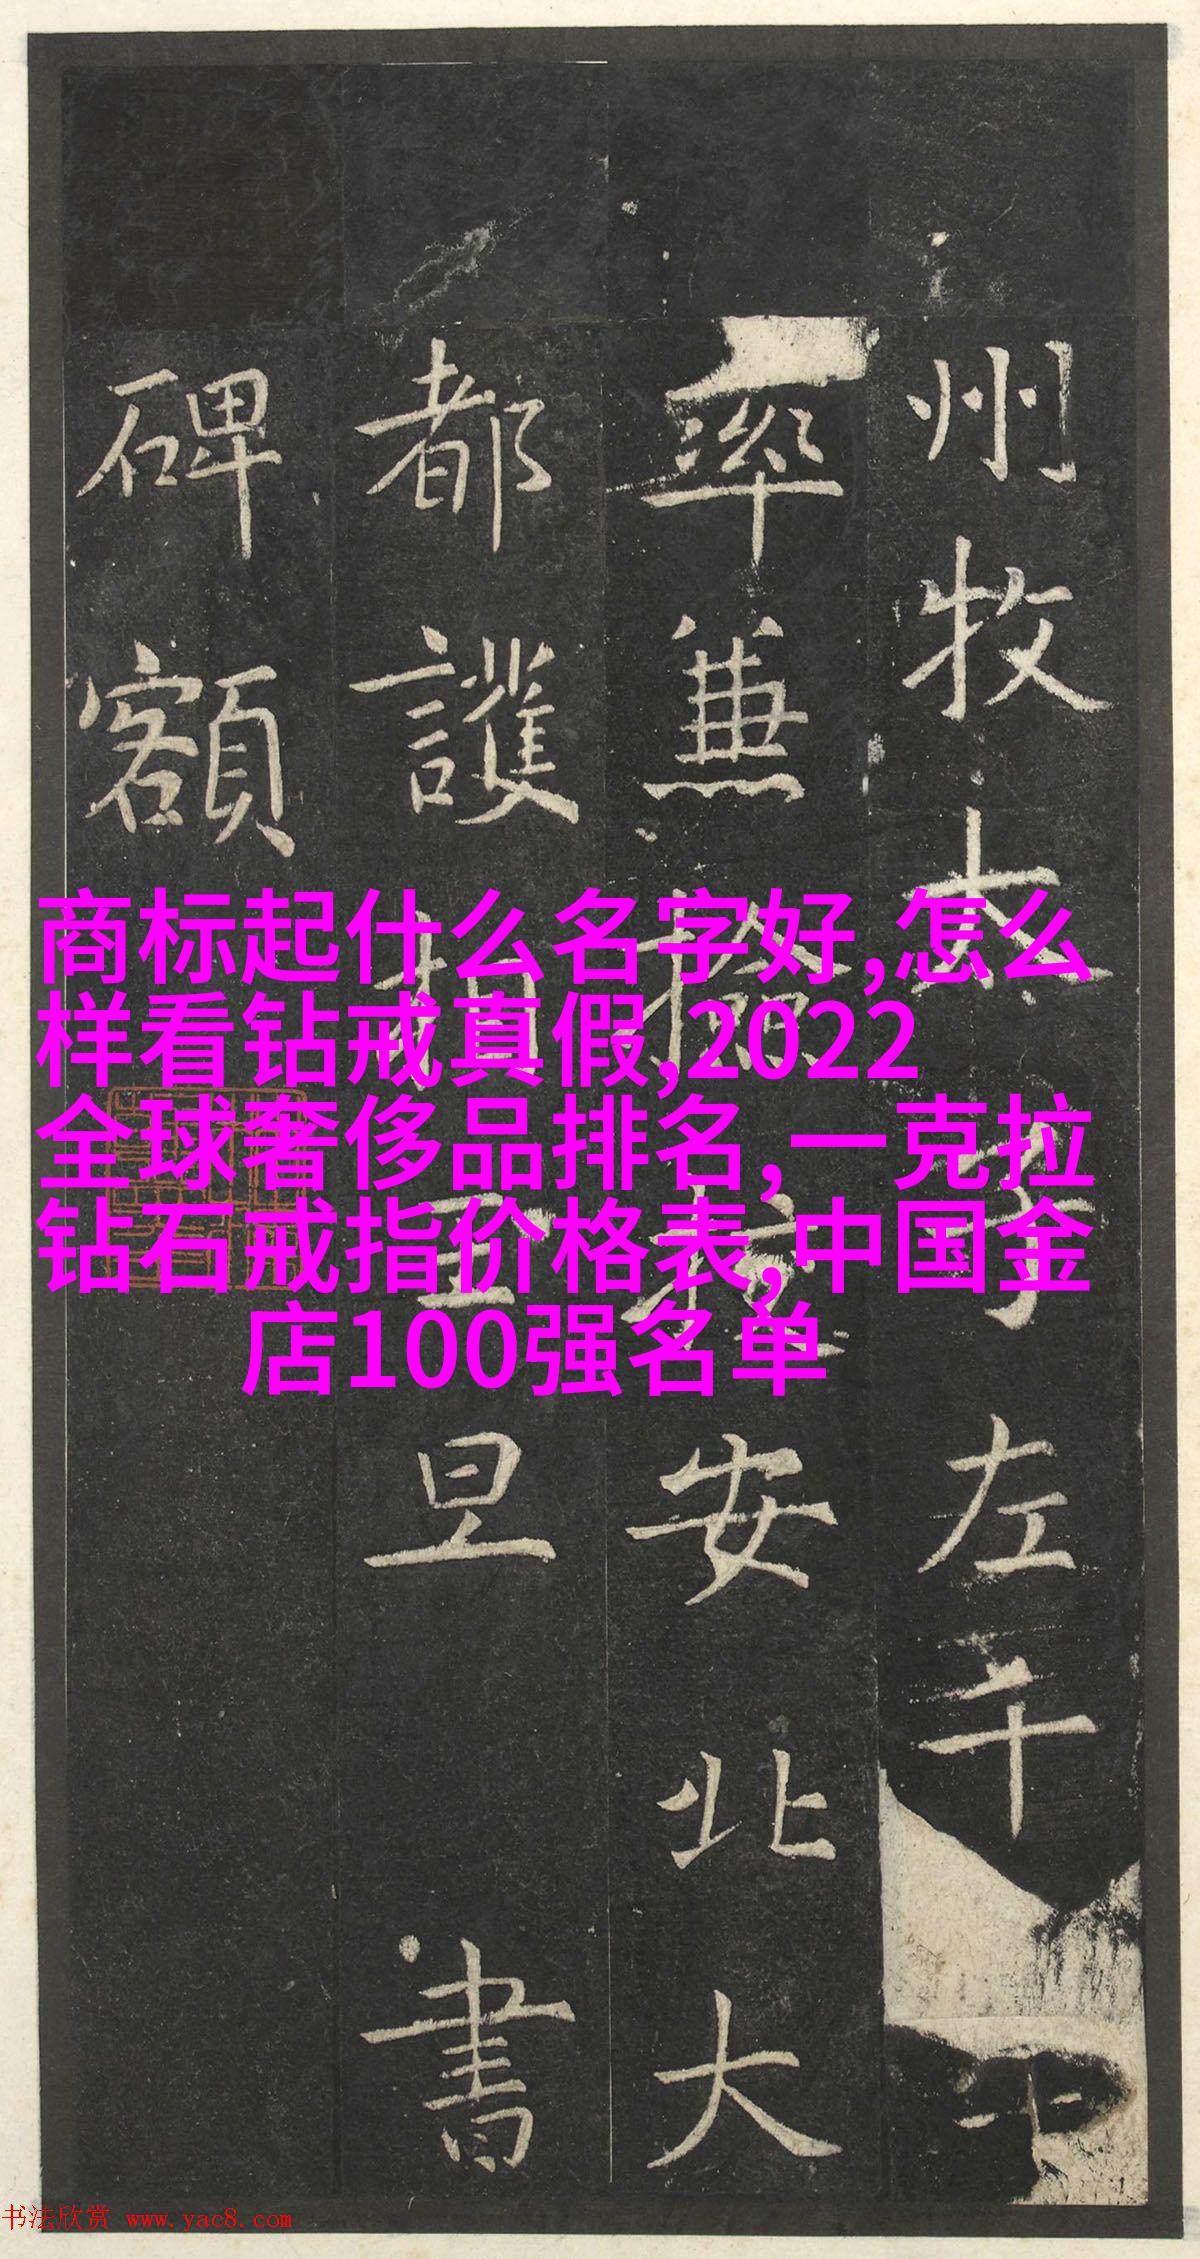 州牧太子左千
率兼檢校安北大
都護相王旦書
碑額
商标起什么名字好,怎么
样看钻戒真假,2022
全球奢侈品排名,一克拉
钻石戒指价格表,中国金
店100强名单
书法欣赏 www.yac8.com